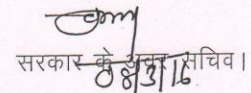 सरकार के अवर सचिव।
08/3/16